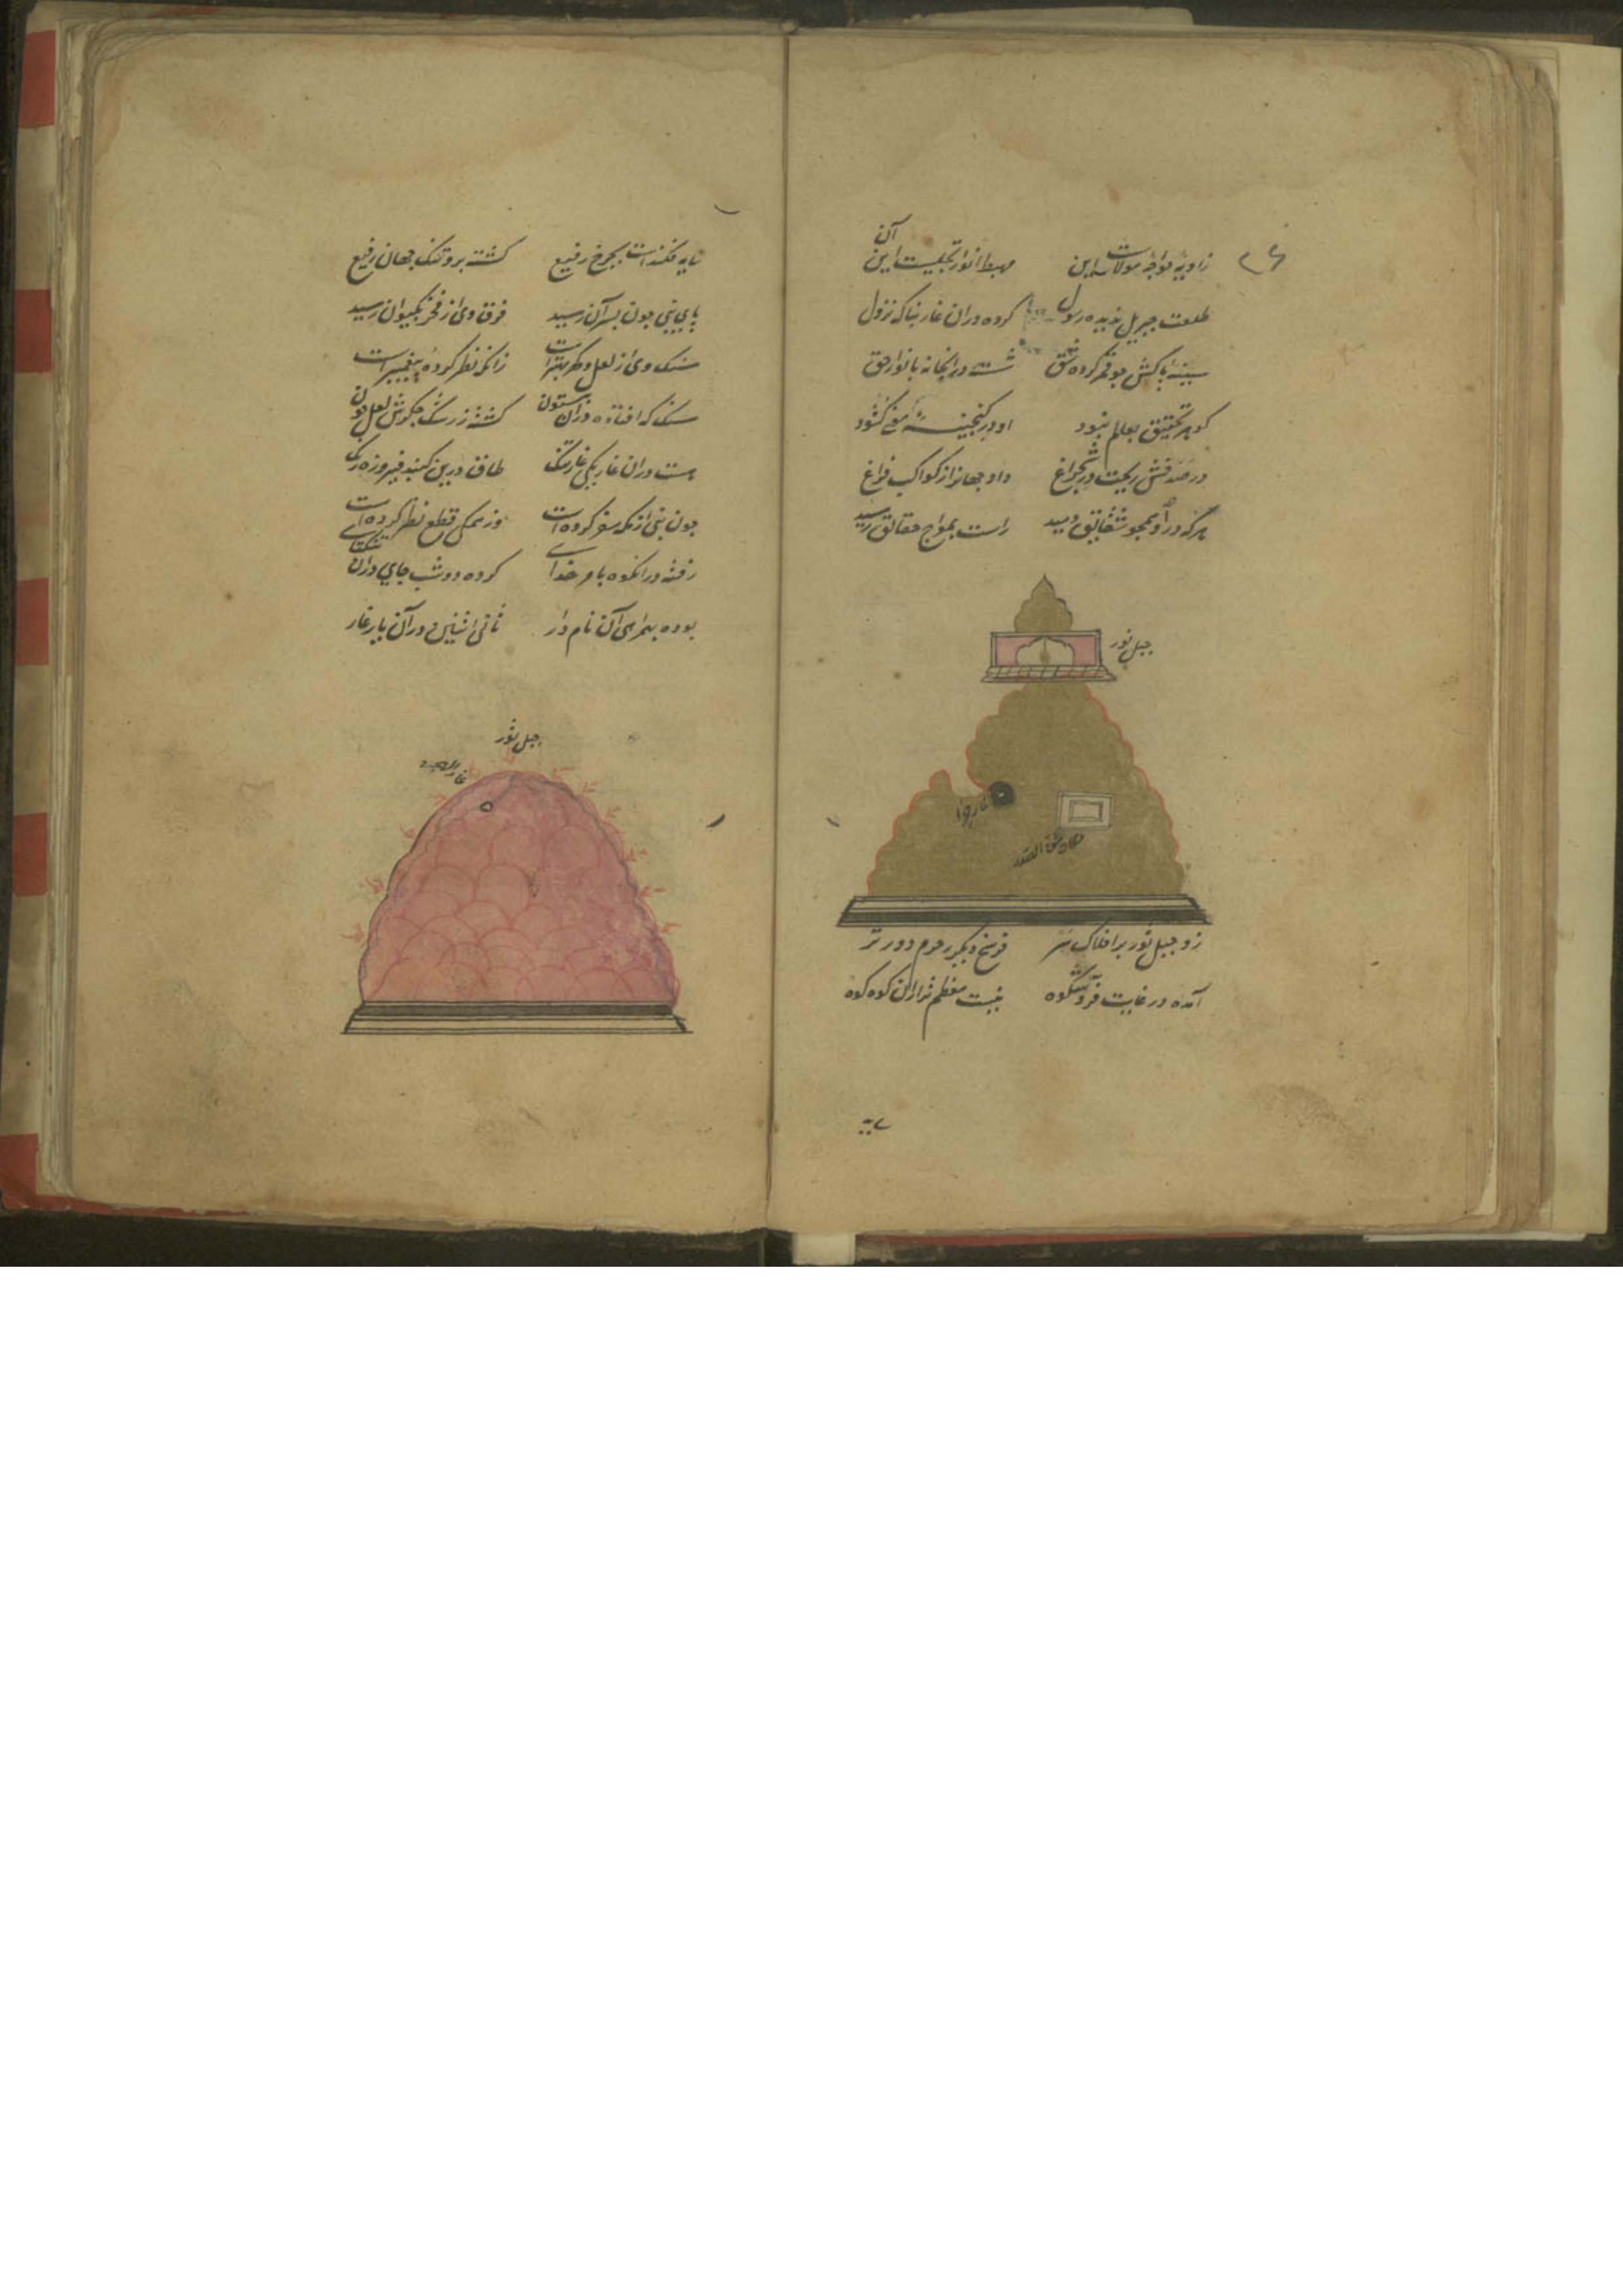 زاویه خواجه مولاست این مهبط انوار تجلیست این
آن
طلعت جبریل بدیده رسول کرده در آن غار بناکه نزول
سینه پاکش چو قمر کرده شق شسته در انجا نه بانوار حق
کوهر تحقیق بعالم نبود او در کنجینه معنی کشود
در صدفش ریخت در شبچراغ داد جهانرا ز کواکب فراغ
هرکه در او همچو شقایق دمید راست بمعراج حقایق رسید
جبل نور
غار حرا
مکان شق الصدر
زو جبل ثور بر افلاک سر فرسخ دیگر ز حرم دورتر
آمده در غایت فر و شکوه نیست معظم تر ازان کوه کوه
سایه فکندست بچرخ رفیع کشته برو تنک جهان رفیع
پای نبی چون بسر آن رسید فرق وی از فخر بکیوان رسید
سنک وی از لعل و کهر بهترست زانکه نظر کرده پیغمبرست
سنک که افتاده در آن بیستون کشته ز رشک جکرش لعل خون
هست در آن غار یکی غار تنک طاق درین کنبد فیروزه رنک
چون نبی از مکه سفر کرده است وز همکی قطع نظر کرده است
رفته در انکوه بامر خدای کرده دو شب جای در آن تنکنای
بوده بهمراهی آن نام دار ثانی اثنین در آن یار غار
جبل ثور